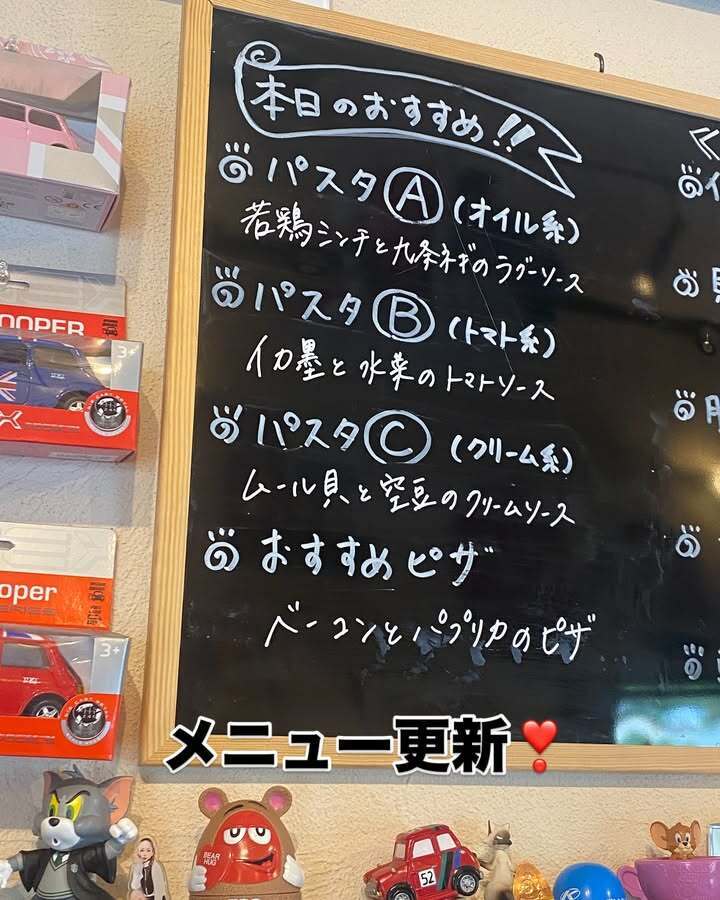 本日のおすすめ!!
パスタⒶ(オイル系)
若鶏ミンチと九条ネギのラグーソース
パスタⒷ(トマト系)
イカ墨と水菜のトマトソース
パスタⒸ(クリーム系)
ムール貝と空豆のクリームソース
おすすめピザ
ベーコンとパプリカのピザ
メニュー更新❣️
OOPER
3+
ooper
3+
BEAR HUG
52